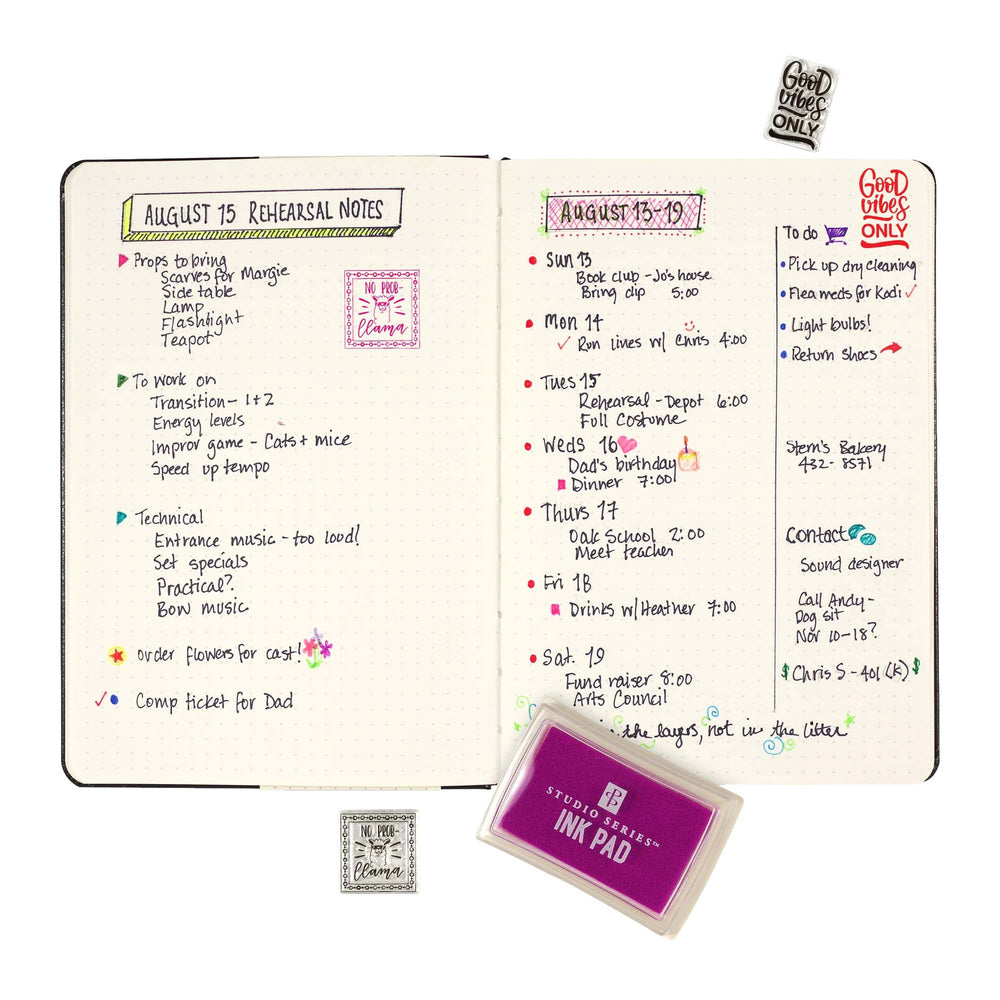 GOOD
vibes
ONLY
AUGUST 15 REHEARSAL NOTES
Props to bring
Scarves for Margie
Side table
Lamp
Flashlight
Teapot
NO PROB-
llama
To work on
Transition - 1+2
Energy levels
Improv game - Cats + mice
Speed up tempo
Technical
Entrance music - too loud!
Set specials
Practical?
Bow music
order flowers for cast!
Comp ticket for Dad
AUGUST 13-19
Sun 13
Book club - Jo's house
Bring dip 5:00
Mon 14
Run lines w/ Chris 4:00
Tues 15
Rehearsal - Depot 6:00
Full Costume
Weds 16
Dad's birthday
Dinner 7:00
Thurs 17
Oak School 2:00
Meet teacher
Fri 18
Drinks w/Heather 7:00
Sat. 19
Fund raiser 8:00
Arts Council
the layers, not in the litter
GOOD
vibes
ONLY
To do
Pick up dry cleaning
Flea meds for Kodi
Light bulbs!
Return Shoes
Stern's Bakery
432-8571
Contact
Sound designer
Call Andy-
Dog sit
Nov 10-18?
$ Chris S - 401(k) $
NO PROB-
llama
STUDIO SERIES™
INK PAD